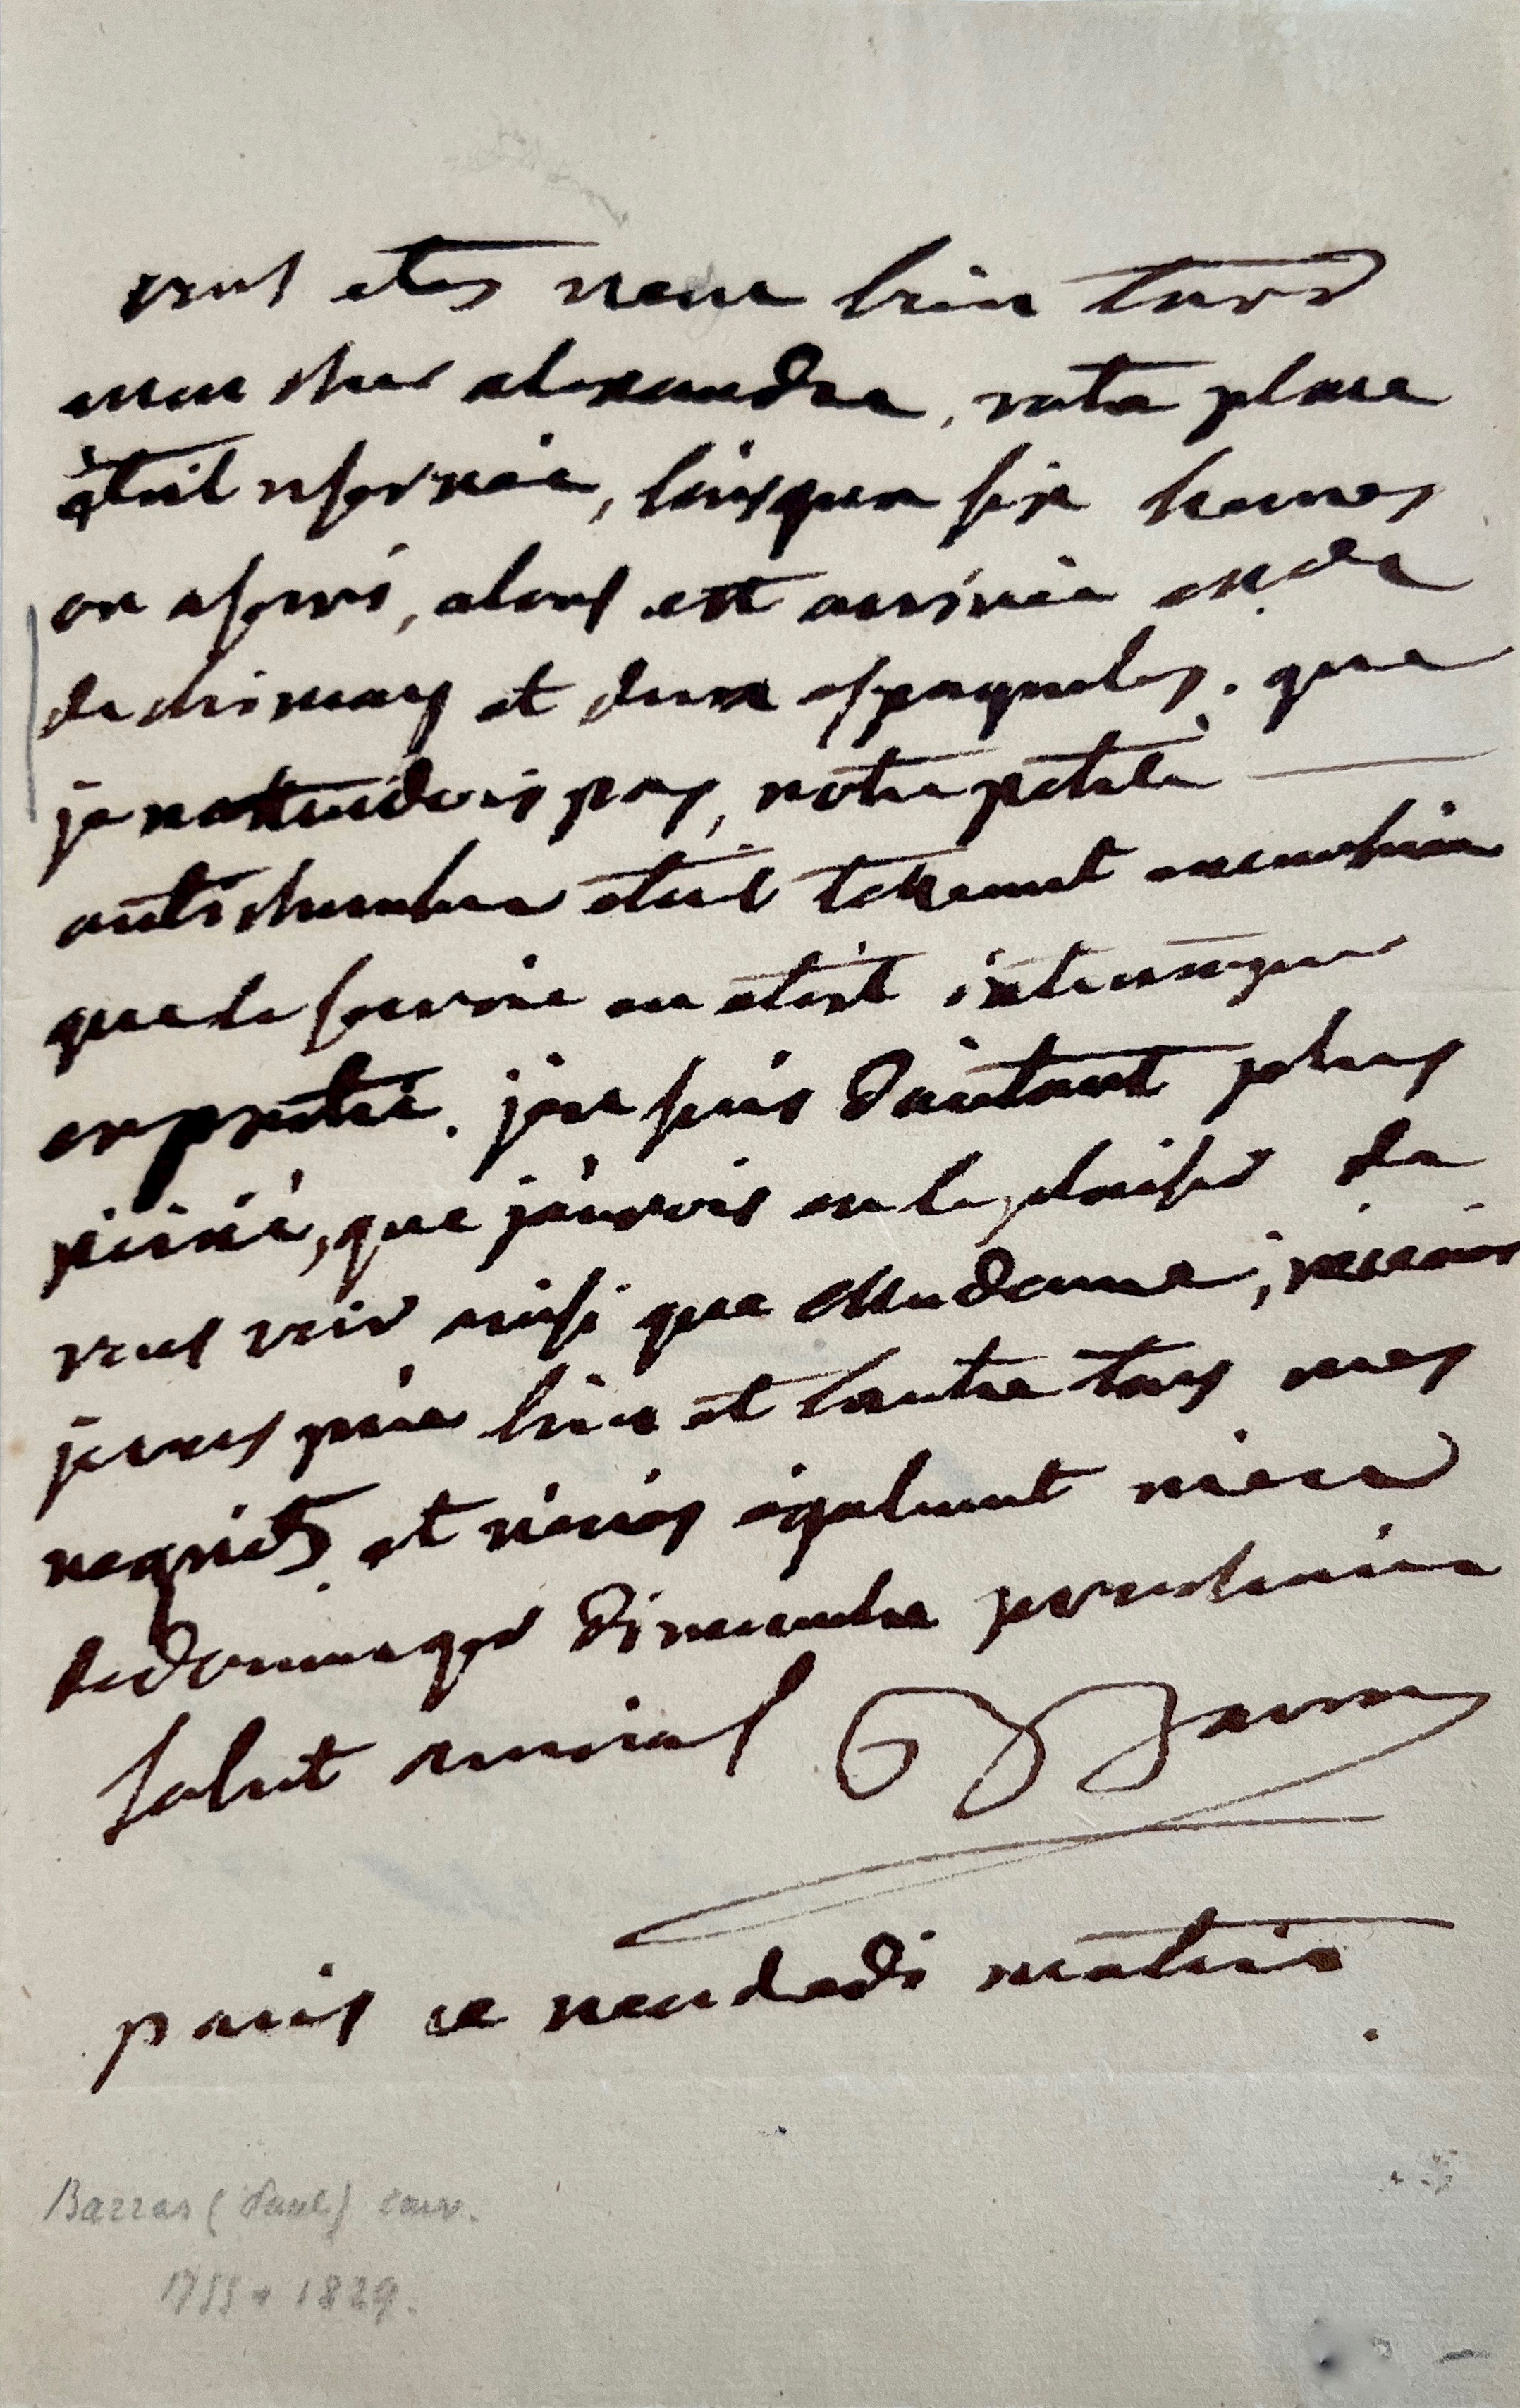 vous etes venu bien tard
mon cher alexandre, votre place
étoit reservée, lorsqua six heures
on a servi, alors est arrivée mde
de chimay et deux espagnoles. que
je nattendois pas, notre petite
antichambre etoit tellement encombrée
que le service en etoit interrompu
empietré. j'en suis dautant plus
peiné, que j'aurois eu le plaisir de
vous voir ainsi que Madame, recevés
je vous prie lun et lautre tous mes
regrets et venés égalemt me
dedommager dimanche prochain
salut amical P Barras
paris ce vendredi matin
Barras (Paul) conv.
1755 + 1829.